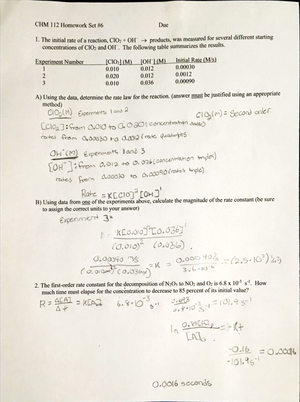 CHM 112 Homework Set #6 Due
1. The initial rate of a reaction, ClO₂ + OH⁻ → products, was measured for several different starting
concentrations of ClO₂ and OH⁻. The following table summarizes the results.
Experiment Number [ClO₂] (M) [OH⁻] (M) Initial Rate (M/s)
1 0.010 0.012 0.00030
2 0.020 0.012 0.0012
3 0.010 0.036 0.00090
A) Using the data, determine the rate law for the reaction. (answer must be justified using an appropriate
method)
ClO₂(M) Experiments 1 and 2
ClO₂(M) = Second order
[ClO₂]: from 0.010 to 0.020 (concentration doubles)
rates from 0.00030 to 0.0012 (rate quadruples
OH⁻(M) Experiments 1 and 3
[OH⁻]: from 0.012 to 0.036 (concentration triples)
rates from 0.00030 to 0.00090 (rates triple)
Rate = K[ClO]²[OH]¹
B) Using data from one of the experiments above, calculate the magnitude of the rate constant (be sure
to assign the correct units to your answer)
Experiment 3
K[0.010]²[0.036]¹
(0.010)² (0.036)
0.00090
= K = 0.00090
3.6
2. The first-order rate constant for the decomposition of N₂O₅ to NO₂ and O₂ is 6.8 x 10⁻³ s⁻¹. How
much time must elapse for the concentration to decrease to 85 percent of its initial value?
R = Δ[A] = K[A]
Δt
6.8·10⁻³ s⁻¹
= 101.9 s⁻¹
ln
[A]₀
-0.16 = 0.0016
-101.9 s⁻¹
0.0016 seconds